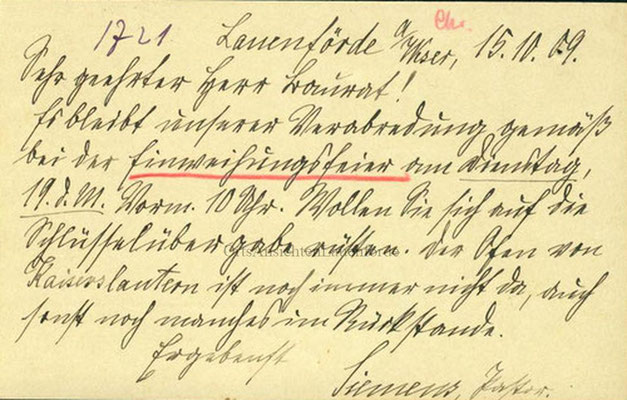 1721 Lauenförde a/Weser, 15.10.09.
Sehr geehrter Herr Baurat!
Es bleibt unserer Verabredung gemäß
bei der Einweihungsfeier am Dienstag,
19. d. M. Vorm. 10 Uhr. Wollen Sie sich auf die
Schlüsselübergabe rüsten. Der Ofen von
Kaiserslautern ist noch immer nicht da, auch
sonst noch manches im Rückstande.
Ergebenst
Siemens, Pastor.